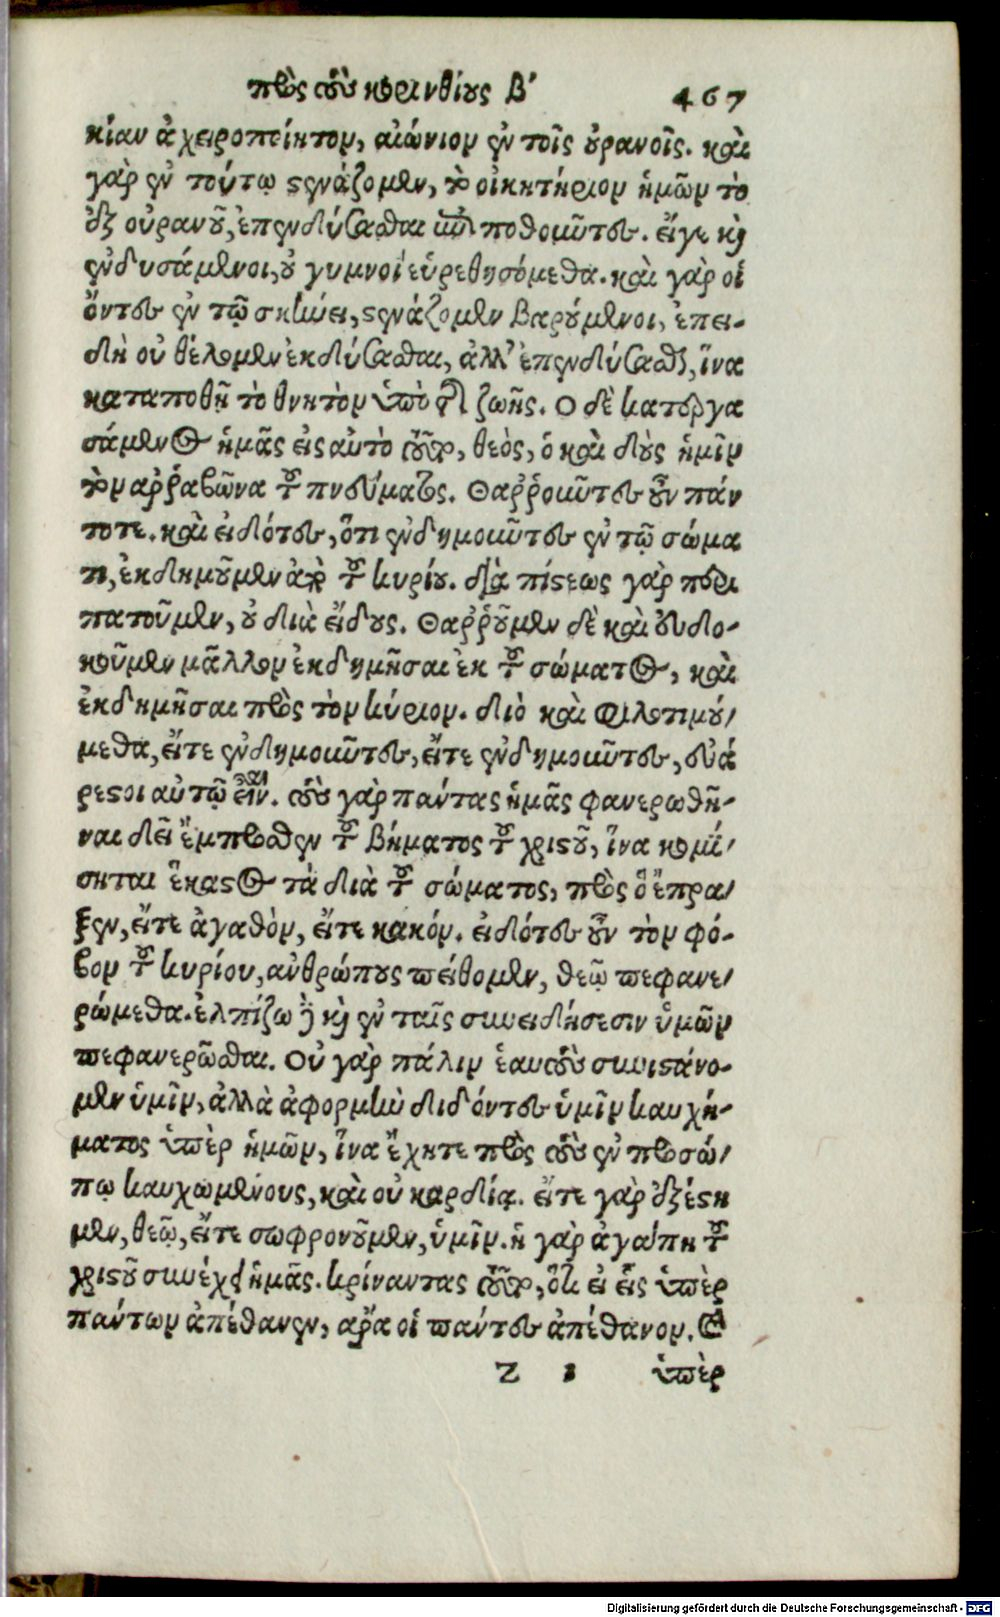 πρὸς τοὺς κορινθίους β´ 467
κίαν ἀχειροποίητον, αἰώνιον ἐν τοῖς οὐρανοῖς. καὶ
γὰρ ἐν τούτῳ στενάζομεν, τὸ οἰκητήριον ἡμῶν τὸ
ἐξ οὐρανοῦ, ἐπενδύσασθαι ἐπιποθοῦντες. εἴγε καὶ
ἐνδυσάμενοι, οὐ γυμνοὶ εὑρεθησόμεθα. καὶ γὰρ οἱ
ὄντες ἐν τῷ σκήνει, στενάζομεν βαρούμενοι, ἐπει-
δὴ οὐ θέλομεν ἐκδύσασθαι, ἀλλ' ἐπενδύσασθαι, ἵνα
καταποθῇ τὸ θνητὸν ὑπὸ τῆς ζωῆς. Ο δὲ κατεργα
σάμενος ἡμᾶς εἰς αὐτὸ τοῦτο, θεὸς, ὁ καὶ δοὺς ἡμῖν
τὸν αῤῥαβῶνα τοῦ πνεύματος. Θαῤῥοῦντες οὖν πάν
τοτε. καὶ εἰδότες, ὅτι ἐνδημοῦντες ἐν τῷ σώμα
τι, ἐκδημοῦμεν ἀπὸ τοῦ κυρίου. διὰ πίστεως γὰρ περι
πατοῦμεν, οὐ διὰ εἴδους. Θαῤῥοῦμεν δὲ καὶ εὐδο-
κοῦμεν μᾶλλον ἐκδημῆσαι ἐκ τοῦ σώματος, καὶ
ἐκδημῆσαι πρὸς τὸν κύριον. διὸ καὶ φιλοτιμού/
μεθα, εἴτε ἐνδημοῦντες, εἴτε ἐνδημοῦντες, εὐά
ρεστοι αὐτῷ εἶναι. τοὺς γὰρ πάντας ἡμᾶς φανερωθῆ-
ναι δεῖ ἔμπροσθεν τοῦ βήματος τοῦ χριστοῦ, ἵνα κομί/
σηται ἕκαστος τὰ διὰ τοῦ σώματος, πρὸς ὃ ἔπρα/
ξεν, εἴτε ἀγαθὸν, εἴτε κακόν. εἰδότες οὖν τὸν φό-
βον τοῦ κυρίου, ἀνθρώπους πείθομεν, θεῷ πεφανε/
ρώμεθα. ἐλπίζω δὲ καὶ ἐν ταῖς συνειδήσεσιν ὑμῶν
πεφανερῶσθαι. Οὐ γὰρ πάλιν ἑαυτοὺς συνιστάνο-
μεν ὑμῖν, ἀλλὰ ἀφορμὴν διδόντες ὑμῖν καυχή-
ματος ὑπὲρ ἡμῶν, ἵνα ἔχητε πρὸς τοὺς ἐν προσώ/
πῳ καυχωμένους, καὶ οὐ καρδίᾳ. εἴτε γὰρ ἐξέστη
μεν, θεῷ, εἴτε σωφρονοῦμεν, ὑμῖν. ἡ γὰρ ἀγάπη τοῦ
χριστοῦ συνέχει ἡμᾶς. κρίναντας τοῦτο, ὅτι εἰ εἷς ὑπὲρ
πάντων ἀπέθανεν, ἄρα οἱ πάντες ἀπέθανον. καὶ
Z 2 ὑπὲρ
Digitalisierung gefördert durch die Deutsche Forschungsgemeinschaft - DFG